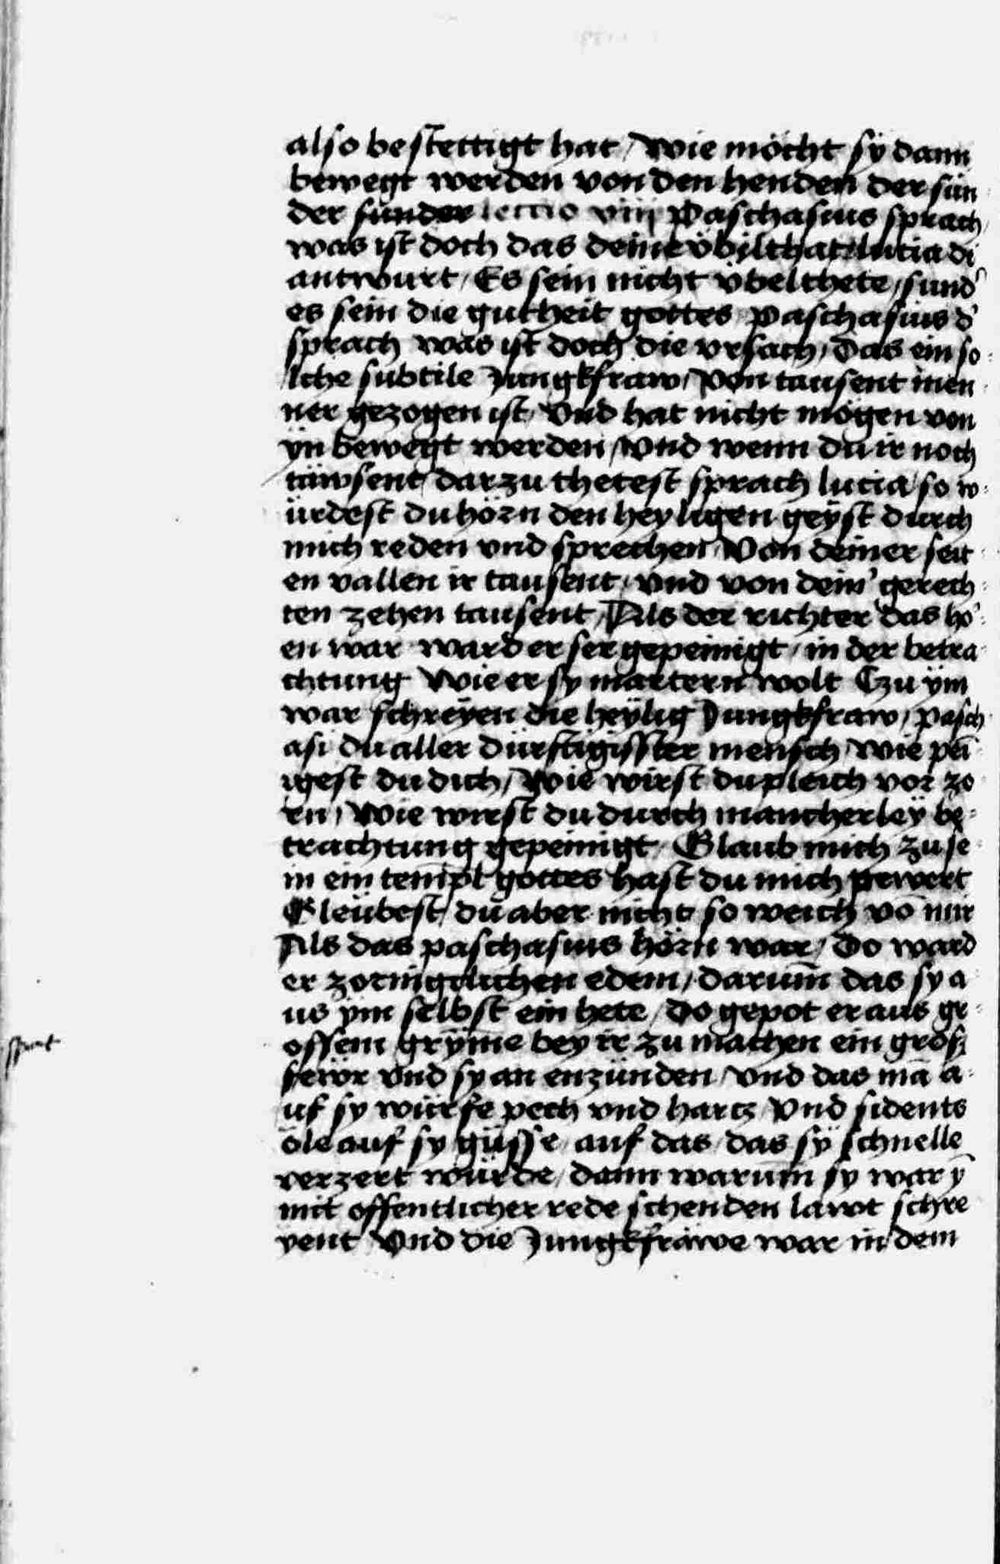 also bestettigt hat / wie möcht sÿ dann
bewegt werden von den henden der sün
der sunder lectio viij Paschasius sprach /
was ist doch das deine übilthat lucia di
antwurt / Es sein nicht vbelthete / sund'
es sein die gutheit gottes paschasius d'
sprach was ist doch die vrsach / Das ein so
lche subtile Jungkfraw / von tausent men
ner gezogen ist / vnd hat nicht mögen von
ÿn bewegt werden / vnd wenn du ir noch
tawsent dar zu thetest sprach lucia so w
ürdest du hörn den heyligen geÿst durch
mich reden vnd sprechen / Von deiner seit
en vallen ir tausent / vnd von dein' gerech
ten zehen tausent / Als der richter das hö
en war ward er ser gepeinigt / in der betra
chtung wie er sy martern wolt Czu ÿm
war schreÿen die heÿlig Jungkfraw / pasch
asi du aller dürftigisster mensch / wie pei
igest du dich / wie wirst du pleich vor zo
rn / wie wirst du durch mancherleÿ be
trachtung gepeinigt / Glaub mich zu se
in ein tempel gottes hast du mich pewert
Gleübest du aber nicht so weich vō mir
Als das paschasius hörn war / Do ward
er zornigclichen edem / darum̄ das sy a
us ym selbst ein hete / Do gepot er aus gr
ossem grÿme bey ir zu machen ein gross
fewr vnd sy an enzünden / vnd das mā a
uf sy würfe pech vnd hartz / vnd sidents
öle auf sy güsse / auf das / das sÿ schnelle
verzert würde / dann warum̄ sy war ȳ
mit offentlicher rede schenden lawt schre
yent vnd die Jungkfrawe war in dem